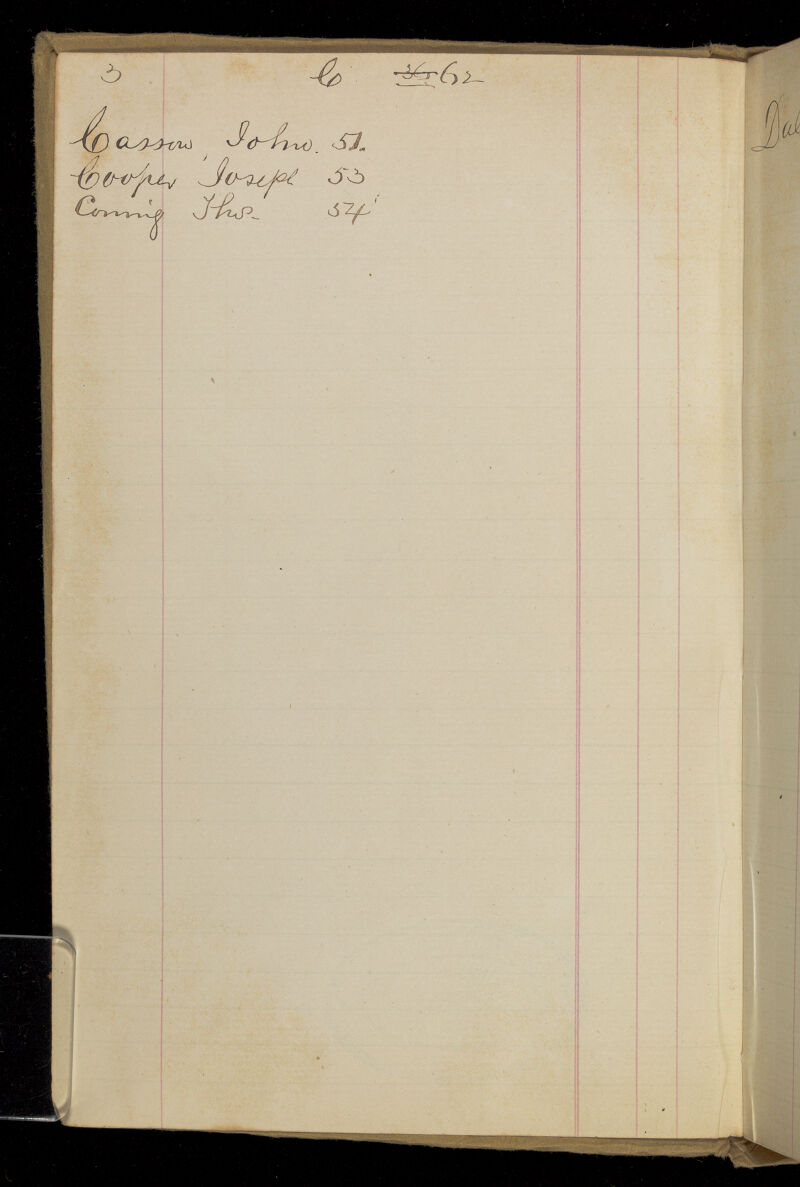 3 C 62
Casson, John. 51.
Cooper Joseph 53
Conning Thos. 54
Dal